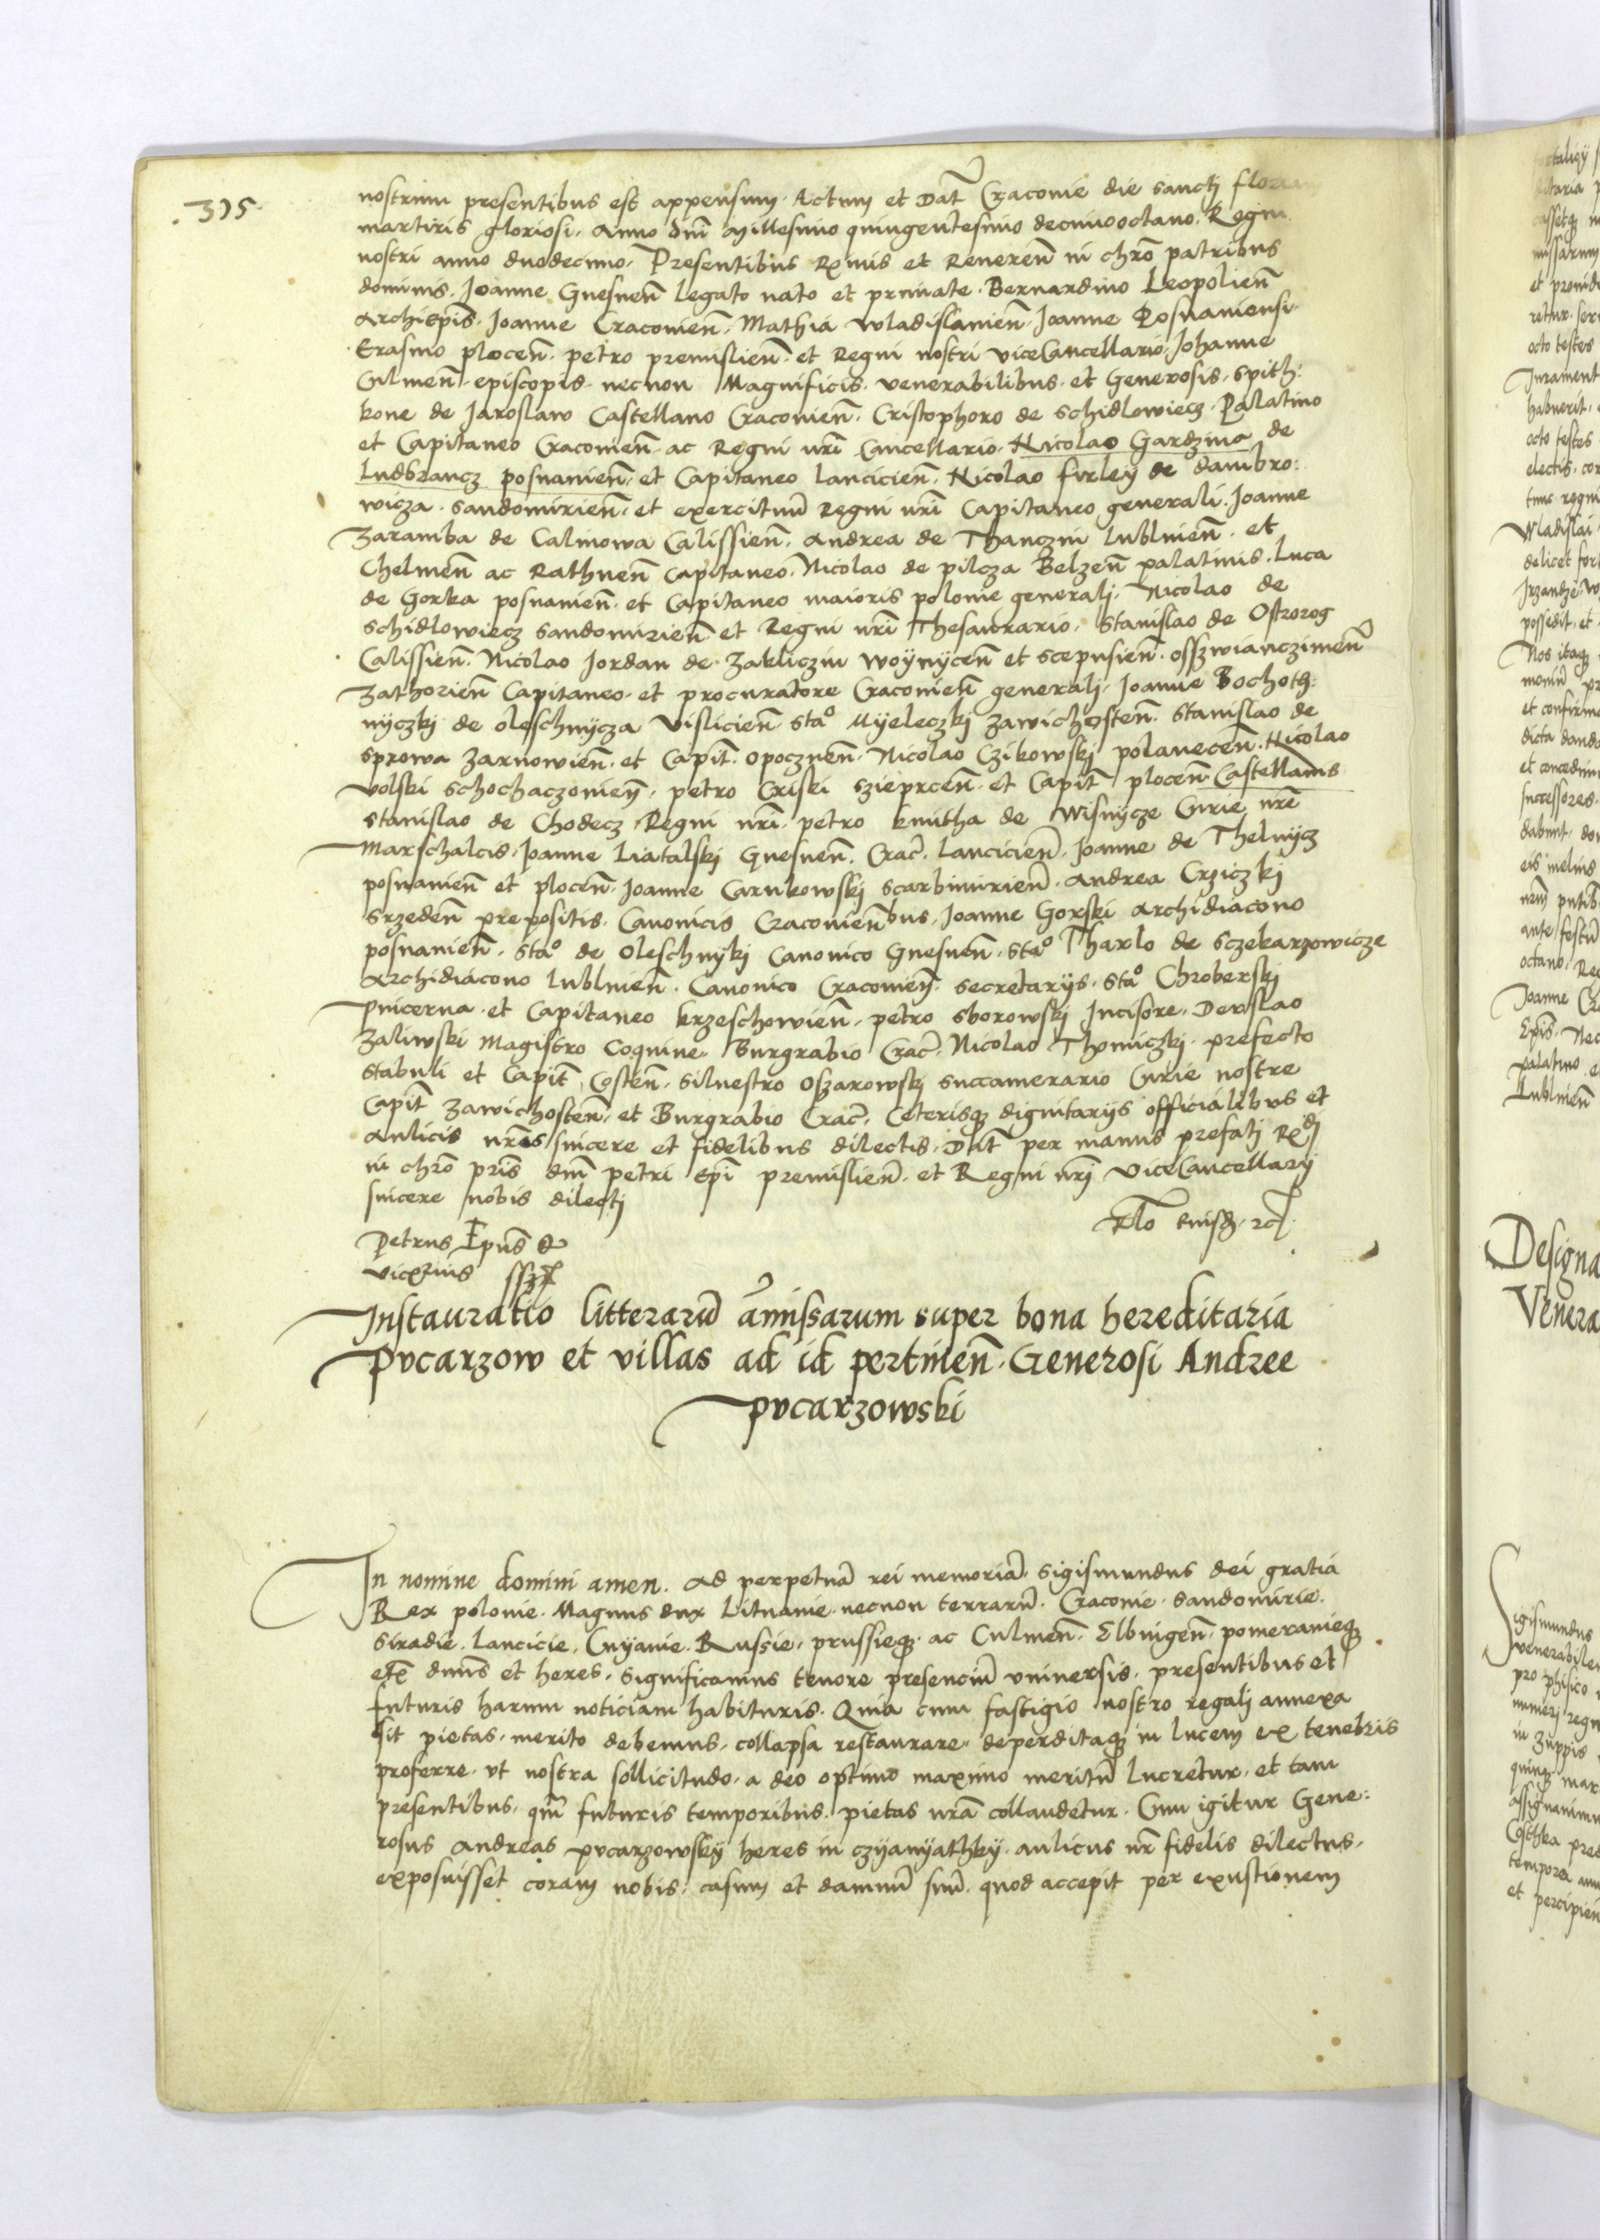 .305.
nostrum presentibus est appensum. Actum et Dat̃ Cracovie die sancti florian
martiris gloriosi. Anno dñi Millesimo quingentesimo decimooctavo. Regni
nostri anno duodecimo. Presentibus Rx̃mis et Reveren̄ in chr̃o patribus
dominis. Joanne Gnesnen̄ legato nato et primate. Bernardino Leopolien̄
Archiep̃is. Joanne Cracovien̄. Mathia Wladislavien̄. Joanne Posnaniensi.
Erasmo plocen̄. petro premislien̄. et Regni nostri viceCancellario. Johanne
Culmen̄. episcopis. necnon Magnificis. venerabilibus. et Generosis. Spith:
kone de Jaroslaw Castellano Cracovien̄. Cristophoro de Schidlowiecz. Palatino
et Capitaneo Cracovien̄. ac Regni nr̃i Cancellario. Nicolao Gardzina de
Ludbrancz posnanien̄. et Capitaneo Lancicien̄. Nicolao firley de dambro:
wicza. Sandomirien̄. et exercituum̄ Regni nr̃i Capitaneo generali. Joanne
Zaramba de Calinowa Calissien̄. Andrea de Thanczin Lublinen̄. et
Chelmen̄ ac Rathnen̄ Capitaneo. Nicolao de pilcza Belzen̄ palatinis. Luca
de Gorka posnanien̄. et Capitaneo maioris polonie generali. Nicolao de
Schidlowiecz Sandomirien̄. et Regni nr̃i Thesaurario. Stanislao de Ostrorog
Calissien̄. Nicolao Jordan de Zakliczin woỹnỹcen̄ et scepusien̄. osszwianczimen̄
Zathorien̄ Capitaneo. et procuratore Cracovien̄ generali. Joanne Bochoth:
nyczki de oleschnycza vislicien̄. Staº Myeleczki zawichosten̄. Stanislao de
Sprowa Zarnowien̄. et Capit̄. opocznen̄. Nicolao Czikowski polanecen̄. Nicolao
volski Schochaczovien̄. petro Criski szieprcen̄. et Capit̄ plocen̄. Castellanis
Stanislao de Chodecz Regni nr̃i. petro kmitha de Wisnycze Curie nr̃e
Marschalcis. Joanne Liatalski Gnesnen̄. Crac̃. Lancicien̄. Joanne de Thelnycz
posnanien̄ et plocen̄. Joanne Carnkowski scarbimirien̄. Andrea Crziczki
Srzeden̄ prepositis. Canonicis Cracovien̄bus. Joanne Gorski Archidiacono
posnanien̄. Staº de Oleschnyki Canonico Gnesnen̄. Staº Tharlo de Sczekarzowicze
Archidiacono Lublinen̄. Canonico Cracovien̄. Secretarys. Staº Chroberski
pincerna. et Capitaneo krzeschowien̄. petro Sborowski Incisore. Derslao
Zaliwski Magistro Coquine. Burgrabio Crac̃. Nicolao Thomiczki. prefecto
stabuli et Capit̄ Costen̄. Silvestro Oszarowski Succamerario Curie nostre
Capit̄ Zawichosten̄. et Burgrabio Crac̃. Ceterisq̃ dignitarys officialibus et
Aulicis nr̃is sincere et fidelibus dilectis. Dat̄ per manus prefati Rx̃di
in chr̃o pr̃is dñi petri ep̃i premislien̄. et Regni nr̃i viceCancellarij
sincere nobis dilecti
Petrus Ep̃us &
Instauratio litterarū amissarum super bona hereditaria
Pvcarzow et villas ad id pertinen̄. Generosi Andree
pvcarzowski
In nomine domini amen. Ad perpetuā rei memoriā. Sigismundus dei gratia
Rex polonie. Magnus dux Lituanie. necnon terrarū. Cracovie. Sandomirie.
Siradie. Lancicie. Cuyavie. Russie. prussieq̃. ac Culmen̄. Elbingen̄. pomeranieq̃
etc̃ dñus et heres. Significamus tenore presenciū universis. presentibus et
futuris harum noticiam habituris. Quia cum fastigio nostro regali annexa
sit pietas. merito debemus. collapsa restaurare. deperditaq̃ in lucem ex tenebris
proferre. ut nostra sollicitudo. a deo optimo maximo meritū lucretur. et tam
presentibus. qm̃ futuris temporibus. pietas nr̃a collaudetur. Cum igitur Gene:
rosus Andreas pvcarzowsky heres in czyanyathky. aulicus nr̃ fidelis dilectus.
exposuisset coram nobis. casum et damnū suū. quod accepit per exustionem